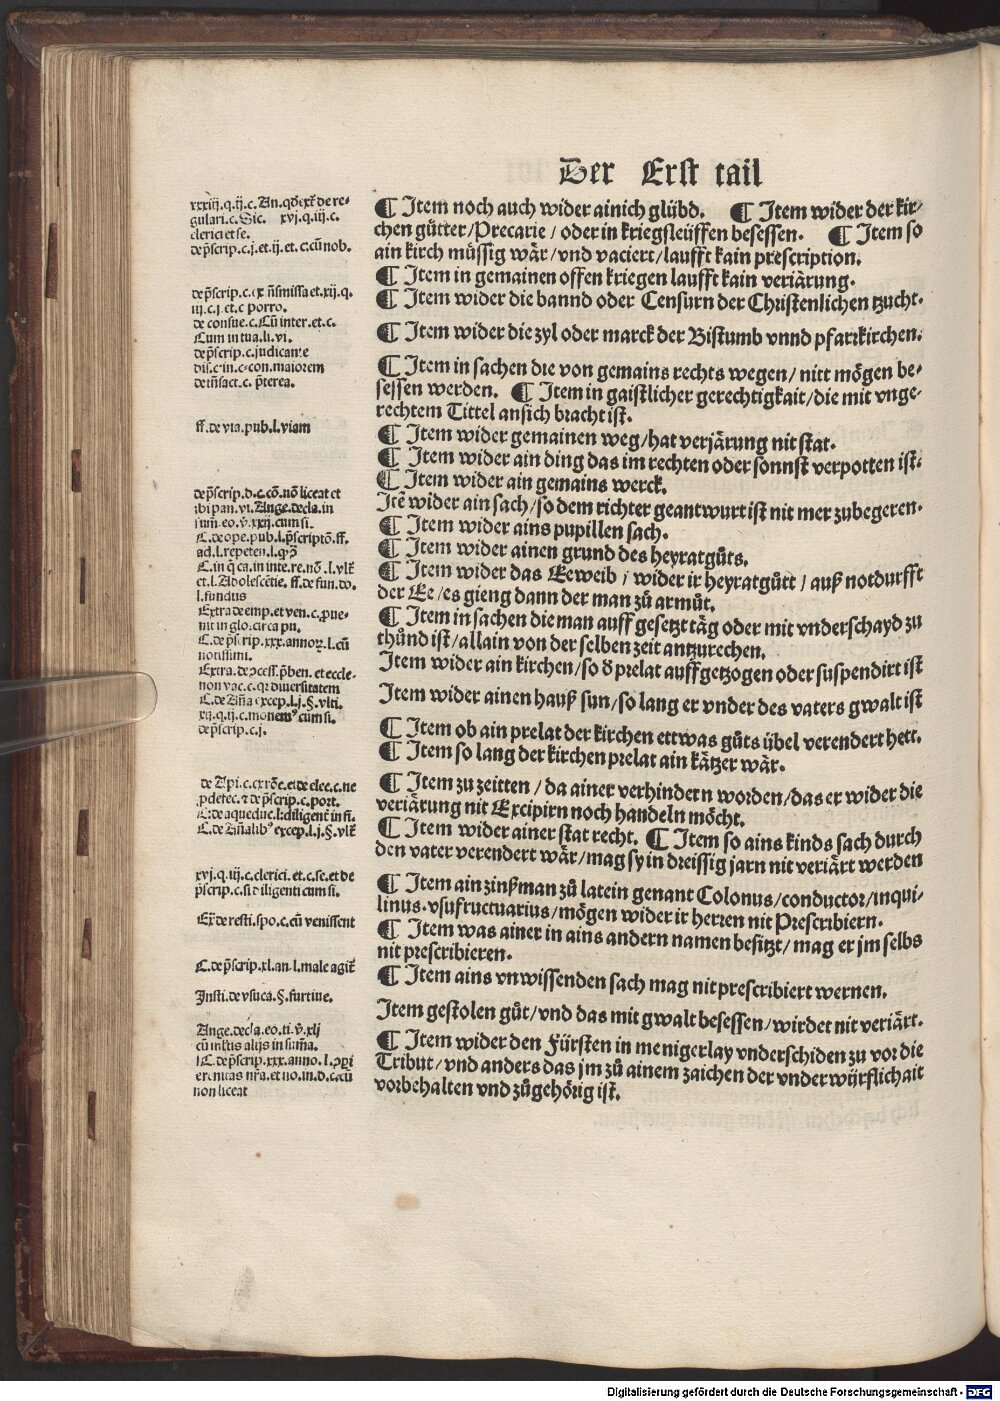 Der Erst tail
xxxiij.q.ij.c. An. qđ extͬ de re-
gulari.c. Sic. xvj.q.iij.c.
clerici et se.
de p̄scrip.c.j.et.ij.et.c.cū nob.
de p̄scrip.c.
iij.c.j.et.c porro.
de consue.c. Cū inter.et.c.
Cum in tua.li.vi.
de p̄scrip.c.judicante
c.in.c.con.maiorem
c. p̄terea.
ff.de via.pub.l.viam
de p̄scrip.d.c.cō.nō liceat et
ibi pan.vi. Ange.decla.in
sum̄.eo.v̄.xxij.cum si.
C.de ope.pub.l.p̄scriptō.ff.
ad.l.repeten.l.
C.in q̄ ca.in inte.re.nō.l.vlt̄
et.l. Adolescētie. ff.de fun.do.
l.fundus
Extra de emp.et ven.c.
nit in glo.circa pu.
C.de p̄scrip.xxx.annoꝝ.l.cū
notissimi.
Extra.de p̄ben.et eccle-
non vac.c.qr diuersitatem
C.de excep.l.j.§.vlti.
xij.q.ij.c. cum si.
de p̄scrip.c.j.
de Api.c. et de elec.c.ne
p defec. ⁊ de p̄scrip.c.port.
C:de aqueduc.l:diligent̄ in fi.
C.de excep.l.j.§.vlt̄
xvj.q.iij.c.clerici.et.c.se.et de
p̄scrip.c.si diligenti cum si.
Extͬ de resti.spo.c.cū venissent
C.de p̄scrip.xl.an.l.male agit̄
Insti.de vsuca.§.furtiue.
Ange.decla.eo.ti.v̄.xlj
cū multis alijs in sum̄a.
C.de p̄scrip.xxx.anno.l.
et.no.in.d.c.cū
non liceat
¶ Item noch auch wider ainich glübd. ¶ Item wider der kir/
chen gütter/Precarie/oder in kriegsleüffen besessen. ¶ Item so
ain kirch müssig wär/vnd vaciert/laufft kain prescription.
¶ Item in gemainen offen kriegen laufft kain veriärung.
¶ Item wider die bannd oder Censurn der Christenlichen tzucht.
¶ Item wider die zyl oder marck der Bistumb vnnd pfarrkirchen.
¶ Item in sachen die von gemains rechts wegen/nitt mögen be/
sessen werden. ¶ Item in gaistlicher gerechtigkait/die mit vnge-
rechtem Tittel an sich bracht ist.
¶ Item wider gemainen weg/hat verjärung nit stat.
¶ Item wider ain ding das im rechten oder sonnst verpotten ist:
¶ Item wider ain gemains werck.
Itē wider ain sach/so dem richter geantwurt ist nit mer zubegeren.
¶ Item wider ains pupillen sach.
¶ Item wider ainen grund des heyratgůts.
¶ Item wider das Eeweib/wider ir heyratgůtt/auß notdurfft
der Ee/es gieng dann der man zů armůt.
¶ Item in sachen die man auff gesetzt täg oder mit vnderschayd zu
thůnd ist/allain von der selben zeit antzurechen.
Item wider ain kirchen/so d̕ prelat auffgetzogen oder suspendirt ist
Item wider ainen hauß sun/so lang er vnder des vaters gwalt ist
¶ Item ob ain prelat der kirchen ettwas gůts übel verendert hett.
¶ Item so lang der kirchen prelat ain kätzer wär.
¶ Item zu zeitten/da ainer verhindern worden/das er wider die
veriärung nit Excipirn noch handeln möcht.
¶ Item wider ainer stat recht. ¶ Item so ains kinds sach durch
den vater verendert wär/mag sy in dreissig jarn nit veriärt werden
¶ Item ain zinßman zů latein genant Colonus/conductor/inqui-
linus.vsufructuarius/mögen wider ir herren nit Prescribiern.
¶ Item was ainer in ains andern namen besitzt/mag er jm selbs
nit prescribieren.
¶ Item ains vnwissenden sach mag nit prescribiert wernen.
Item gestolen gůt/vnd das mit gwalt besessen/wirdet nit veriärt.
¶ Item wider den Fürsten in menigerlay vnderschiden zu vor die
Tribut/vnd anders das jm zů ainem zaichen der vnderwürflichait
vorbehalten vnd zůgehörig ist.
Digitalisierung gefördert durch die Deutsche Forschungsgemeinschaft - DFG